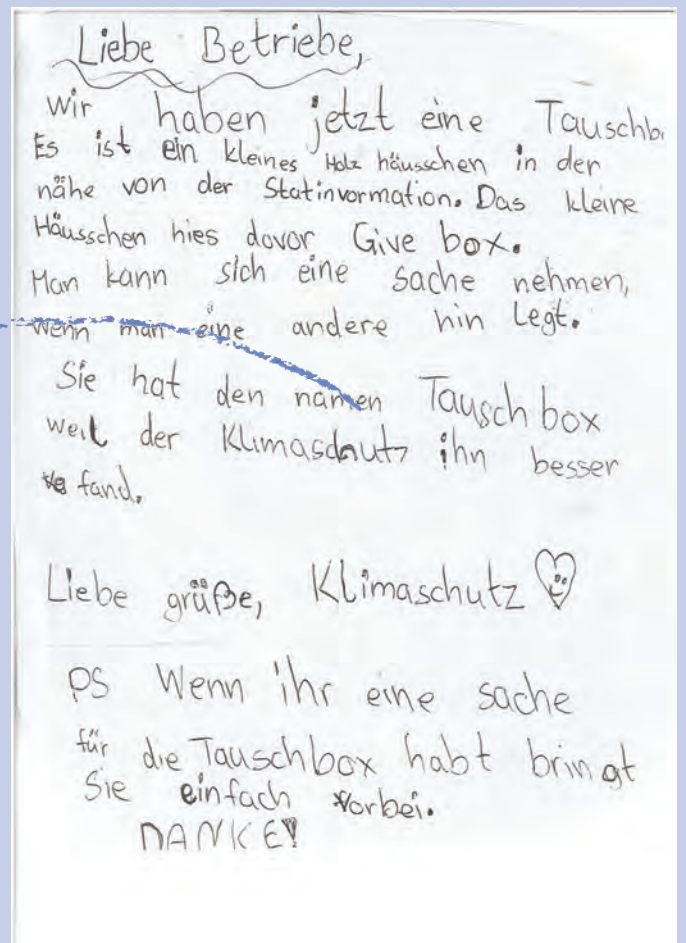 Liebe Betriebe,
wir haben jetzt eine Tauschb
Es ist ein kleines Holz häusschen in der
nähe von der Statinvormation. Das kleine
Häusschen hies davor Give box.
Man kann sich eine sache nehmen,
wenn man eine andere hin Legt.
Sie hat den namen Tausch box
weil der Klimaschutz ihn besser
fand.
Liebe grüße, Klimaschutz
PS Wenn ihr eine sache
für die Tauschbox habt bringt
Sie einfach vorbei.
DANKE!